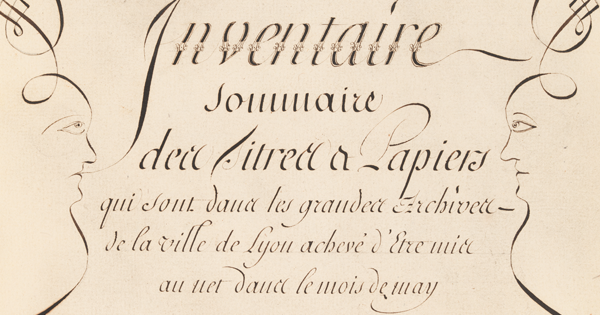 Inventaire
sommaire
des Titres & Papiers
qui sont dans les grandes Archives
de la ville de Lyon achevé d'Etre mis
au net dans le mois de may